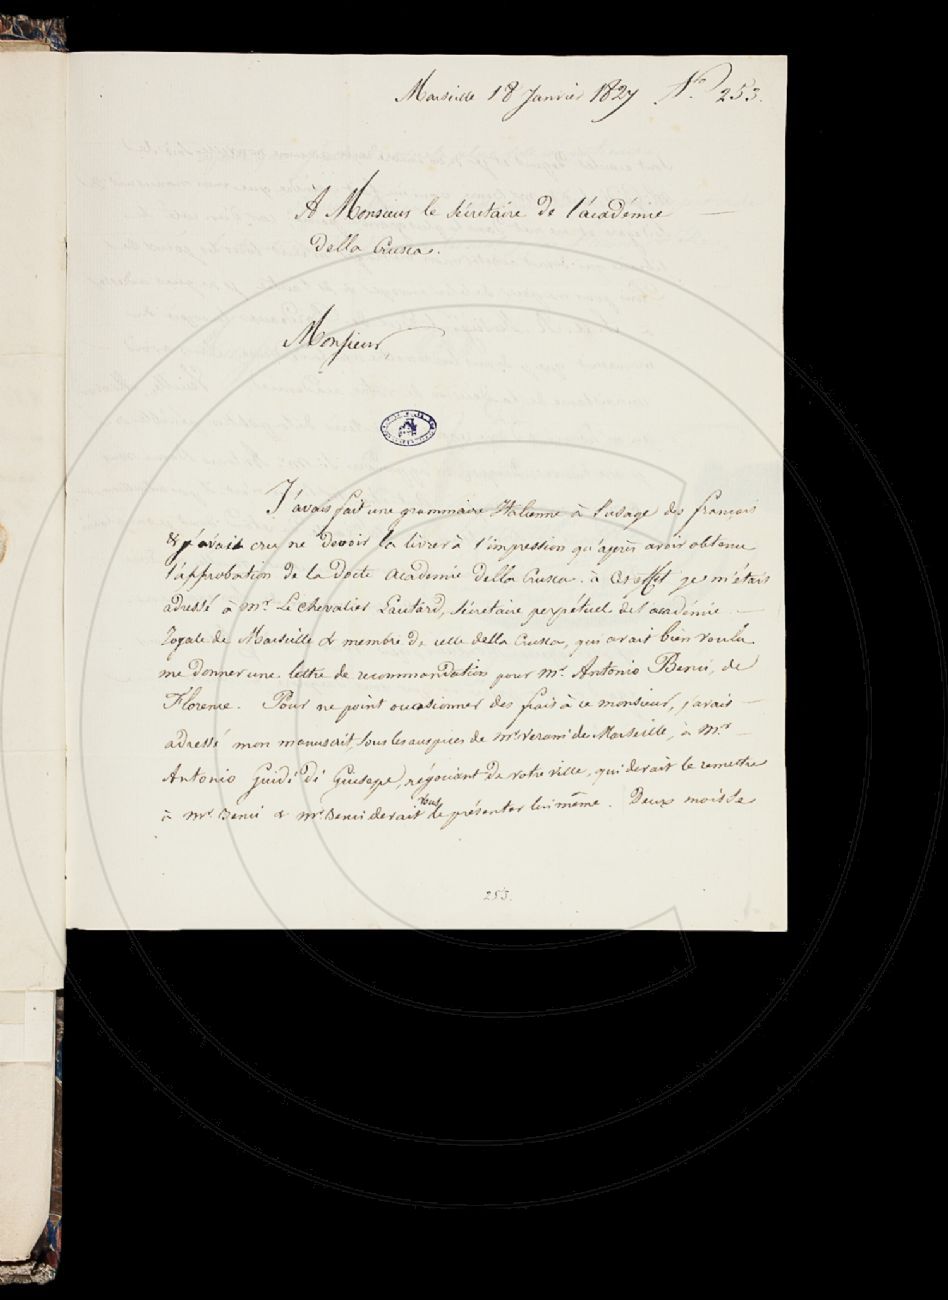 Marseille 18 Janvier 1827 N.º 253.
À Monsieur le sécretaire de l'académie
della Crusca.
Monsieur
J'avais fait une grammaire Italienne à l'usage des français
& j'avait cru ne devoir la livrer à l'impression qu'après avoir obtenu
l'approbation de la docte academie della Crusca. à cet effet je m'étais
adressé à Mr Le chevalier Lautard, sécretaire perpétuel de l'académie
royale de Marseille & membre de celle della Crusca, qui avait bien voulu
me donner une lettre de recommandation pour Mr Antonio Benci, de
Florence. Pour ne point occasionner des frais à ce monsieur, j'avais
adressé mon manuscrit, sous les auspices de Mr de Marseille, à Mr
Antonio Guidi di Guisepe, négociant de votre ville, qui devait le remettre
à Mr Benci & Mr Benci devait vous le présenter lui même. Deux mois se
253.